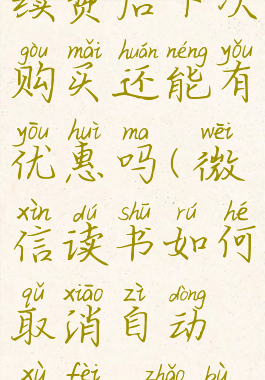 续费后下次
gòu mǎi huán néng yǒu
购买还能有
yōu huì ma wēi
优惠吗(微
xìn dú shū rú hé
信读书如何
qǔ xiāo zì dòng
取消自动
xù fèi zhǎo bù